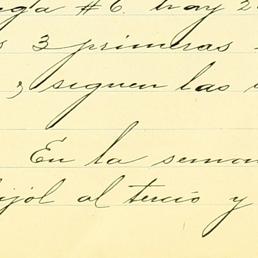 #6. hay 2
3 primeras
, siguen las
En la seman
al tercio y